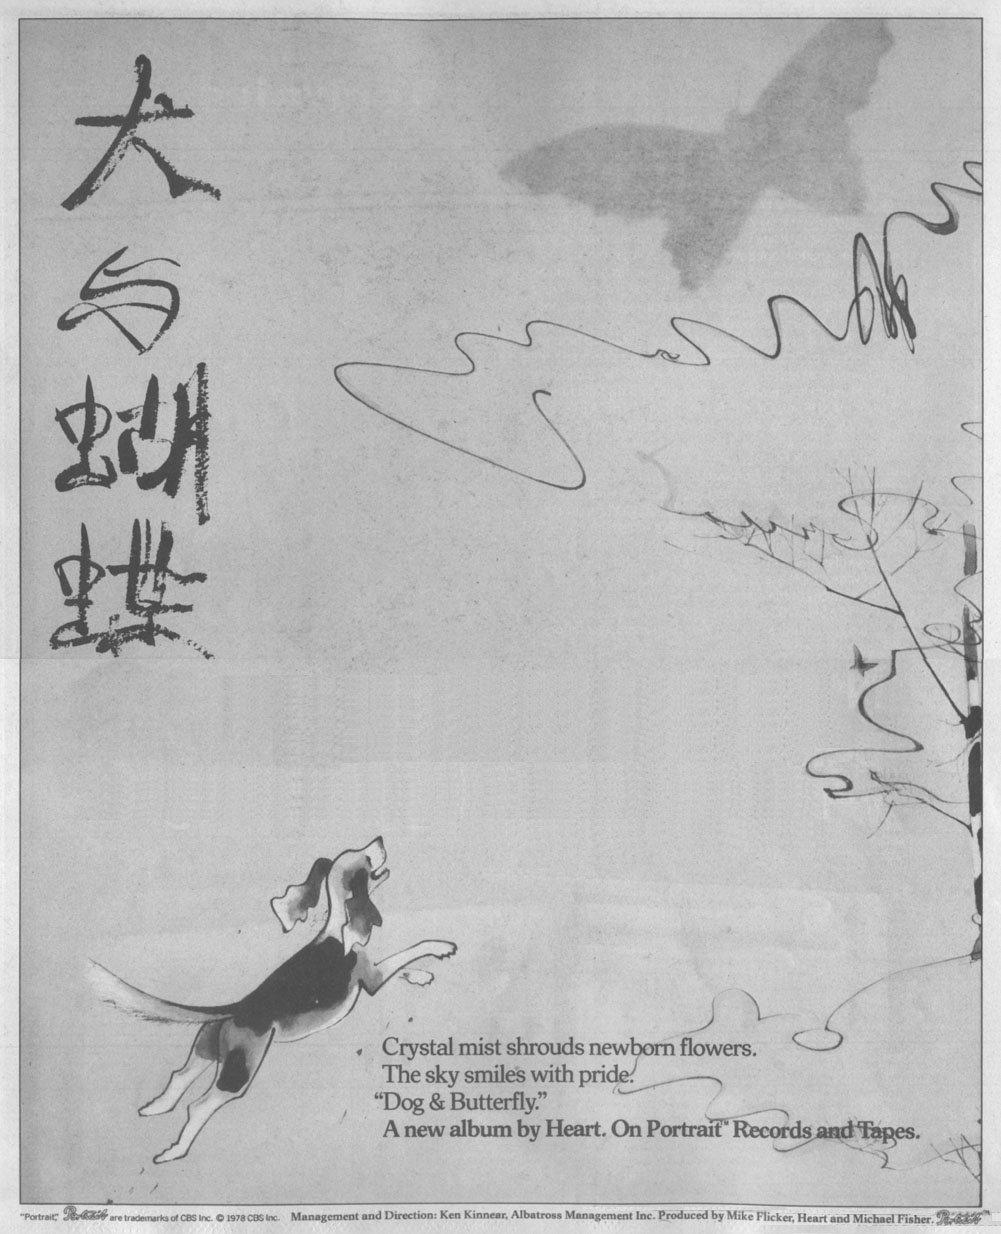 犬
与
蝴
蝶
Crystal mist shrouds newborn flowers.
The sky smiles with pride.
“Dog & Butterfly.”
A new album by Heart. On Portrait™ Records and Tapes.
“Portrait,” Portrait are trademarks of CBS Inc. © 1978 CBS Inc. Management and Direction: Ken Kinnear, Albatross Management Inc. Produced by Mike Flicker, Heart and Michael Fisher. Portrait™